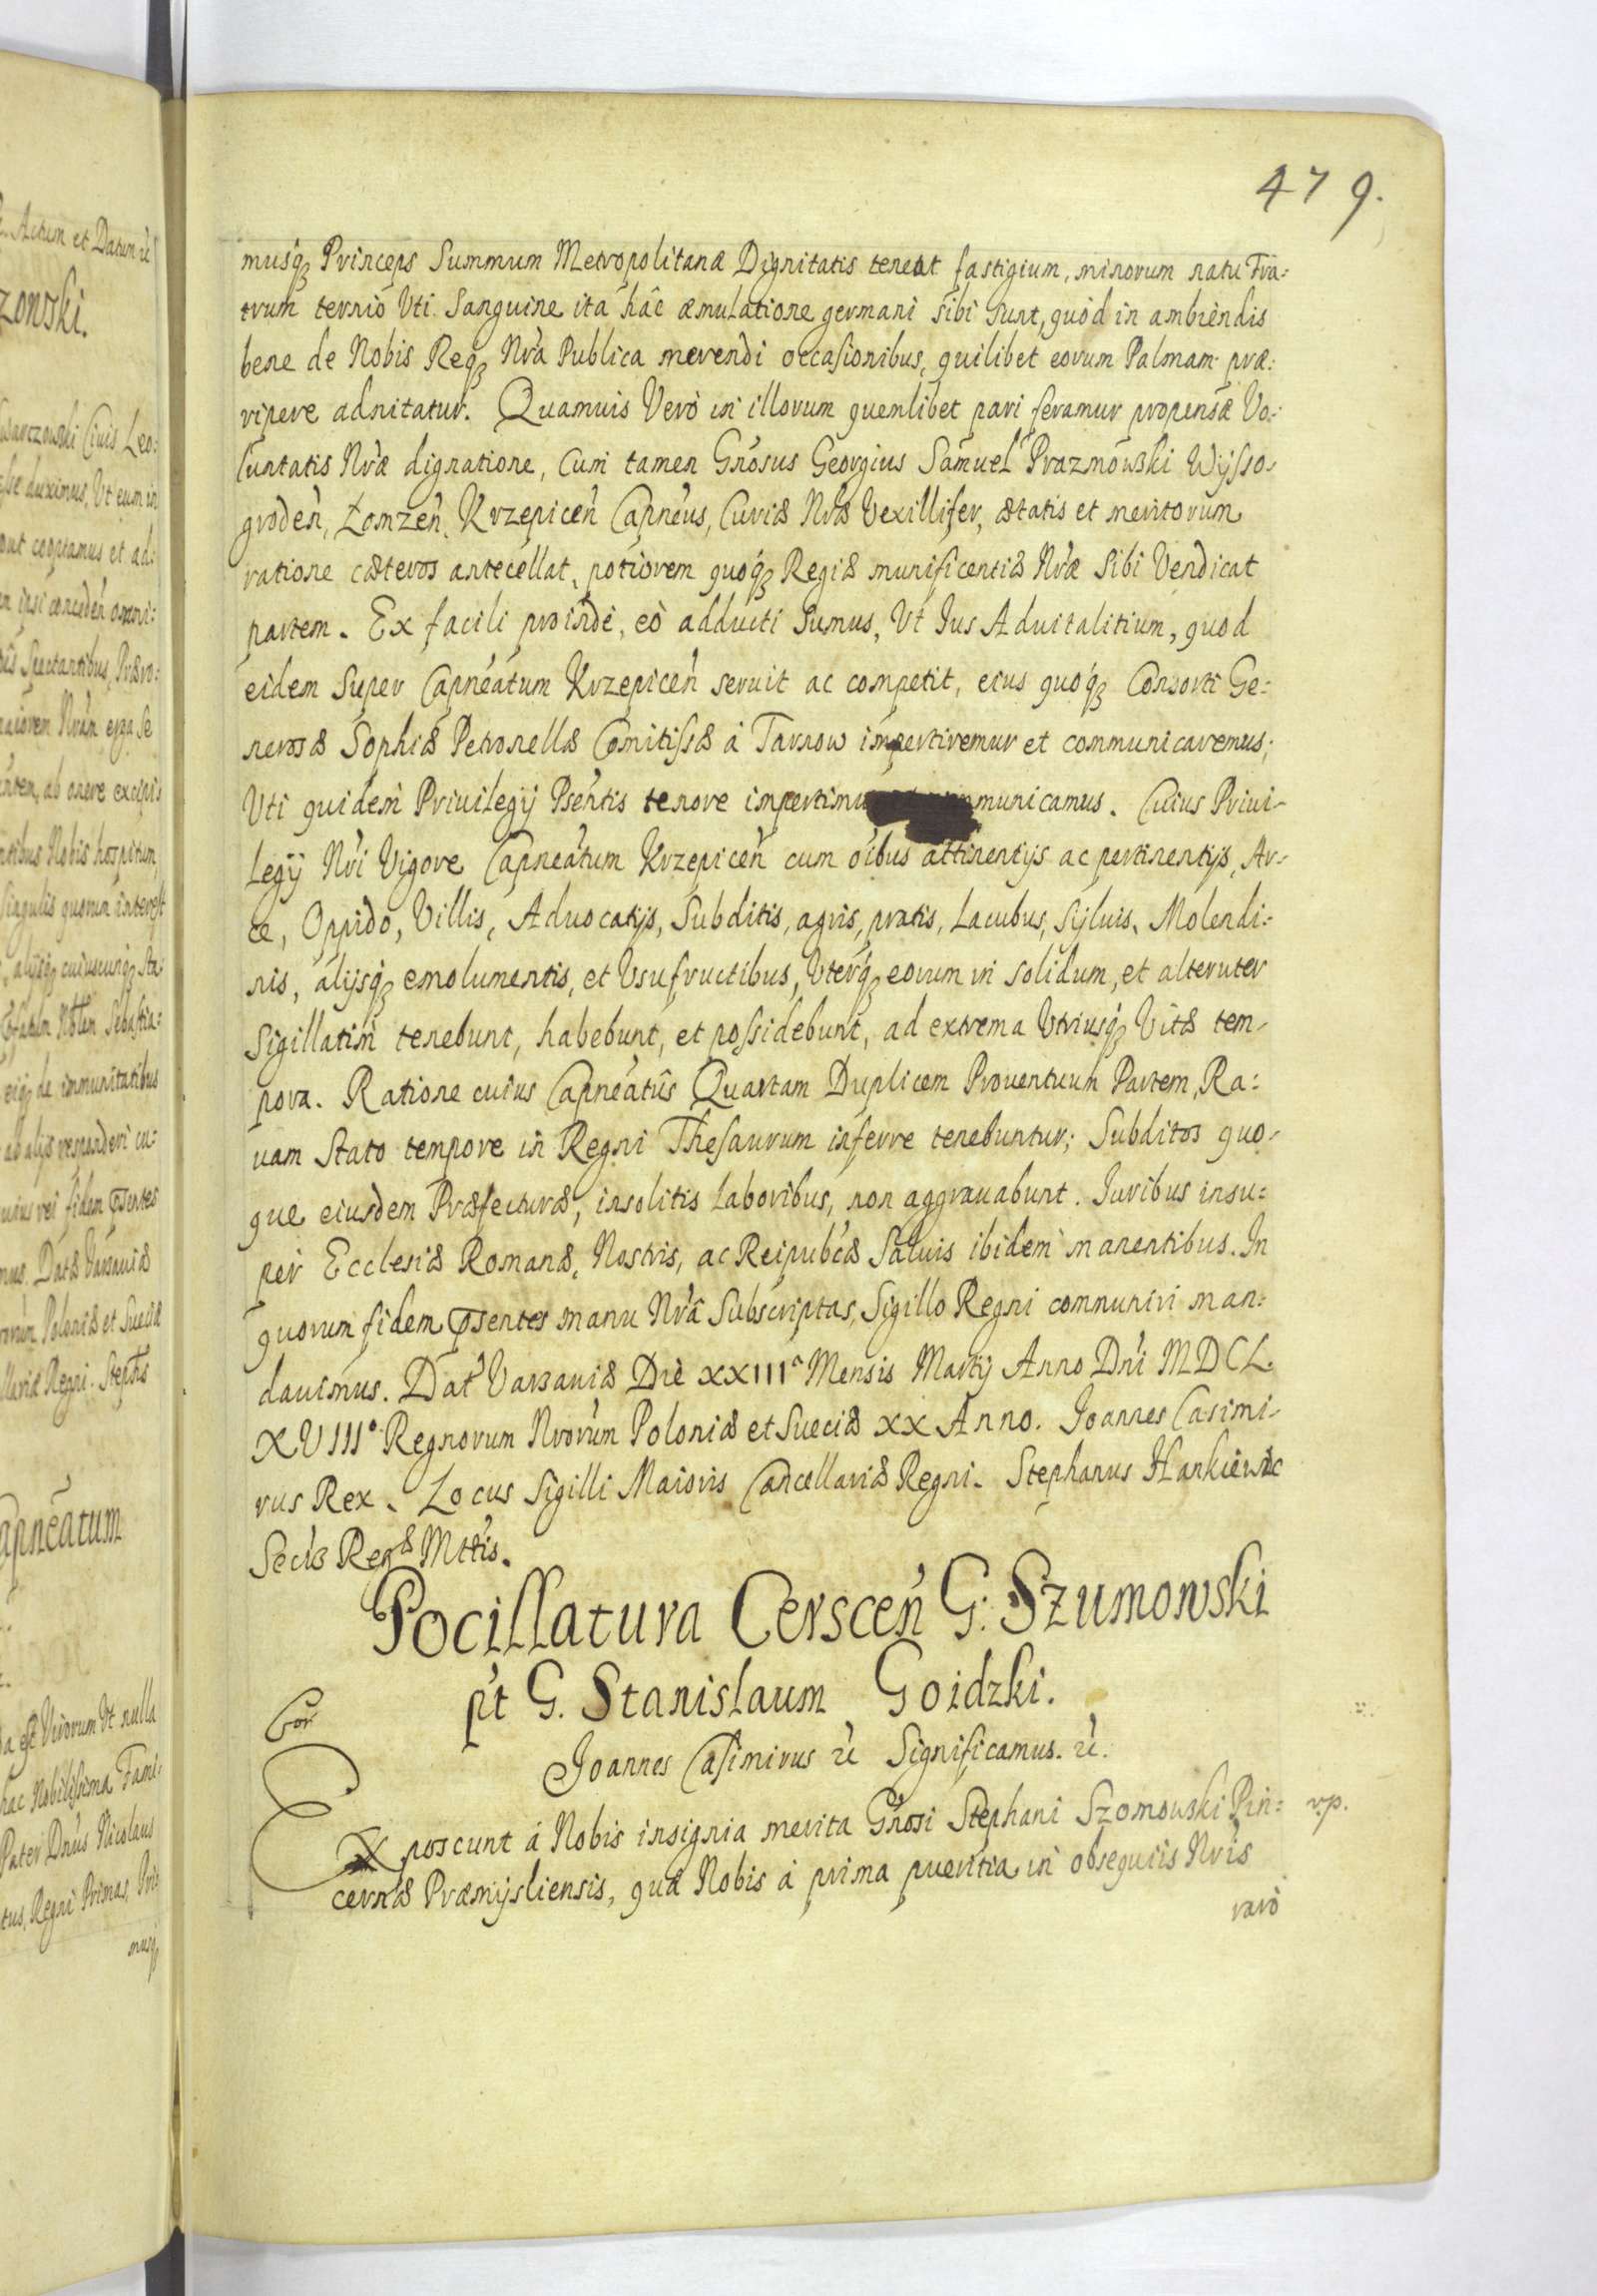 479.
musq₃ Princeps Summum Metropolitanæ Dignitatis teneat fastigium, minorum natu Fra:
trum ternio Uti Sanguine ita hâc æmulatione germani sibi sunt, quòd in ambiendis
bene de Nobis Reqꝫ Nrâ Publica merendi occasionibus, quilibet eorum Palmam præ:
ripere adnitatur. Quamuis Verò in illorum quemlibet pari feramur propensæ Vo:
luntatis Nræ dignatione, Cum tamen Gnosus Georgius Samuel Prazmowski Wysso-
groden, Łomzen, Krzepicen Capneus, Curiæ Nræ Vexillifer, ætatis et meritorum
ratione cæteros antecellat, potiorem quoqꝫ Regiæ munificentiæ Nræ Sibi Vendicat
partem. Ex facili proinde, eò adducti Sumus, Ut Jus Aduitalitium, quod
eidem Super Capneatum Krzepicen seruit ac competit, eius quoqꝫ Consorti Ge:
nerosæ Sophiæ Petronellæ Comitissæ à Tarnow impertiremur et communicaremus;
Uti quidem Priuilegij Psentis tenore impertimu municamus. Cuius Priui-
legij Nri Vigore Capneatum Krzepicen cum oibus attinentijs ac pertinentijs, Ar-
ce, Oppido, Villis, Aduocatijs, Subditis, agris, pratis, Lacubus, Syluis, Molendi:
nis, alijsqꝫ emolumentis, et Usufructibus, Uterqꝫ eorum in solidum, et alteruter
Sigillatim tenebunt, habebunt, et possidebunt, ad extrema Utriusqꝫ Vitæ tem-
pora. Ratione cuius Capneatûs Quartam Duplicem Prouentuum Partem, Ra:
uam Stato tempore in Regni Thesaurum inferre tenebuntur; Subditos quo-
que eiusdem Præfecturæ, insolitis Laboribus, non aggrauabunt. Juribus insu:
per Ecclesiæ Romanæ, Nostris, ac Reipubcæ Saluis ibidem manentibus. In
quorum fidem psentes manu Nrâ Subscriptas, Sigillo Regni communiri man:
dauimus. Dat Varsauiæ Die XXIIIª Mensis Martij Anno Dni MDCL.
XVIIIº Regnorum Nrorum Poloniæ et Sueciæ XX Anno. Joannes Casimi-
rus Rex. Locus Sigilli Maioris Cancellariæ Regni. Stephanus Hankiewic
Secrs Regæ Mttis.
Pocillatura Cerscen G: Szumowski
pt G. Stanislaum Goidzki.
Cor
Joannes Casimirus &c Significamus. &c.
Exposcunt à Nobis insignia merita Gnosi Stephani Szomowski Pin:
vp.
cernæ Præmysliensis, quæ Nobis à prima pueritia in obsequiis Nris
rarò